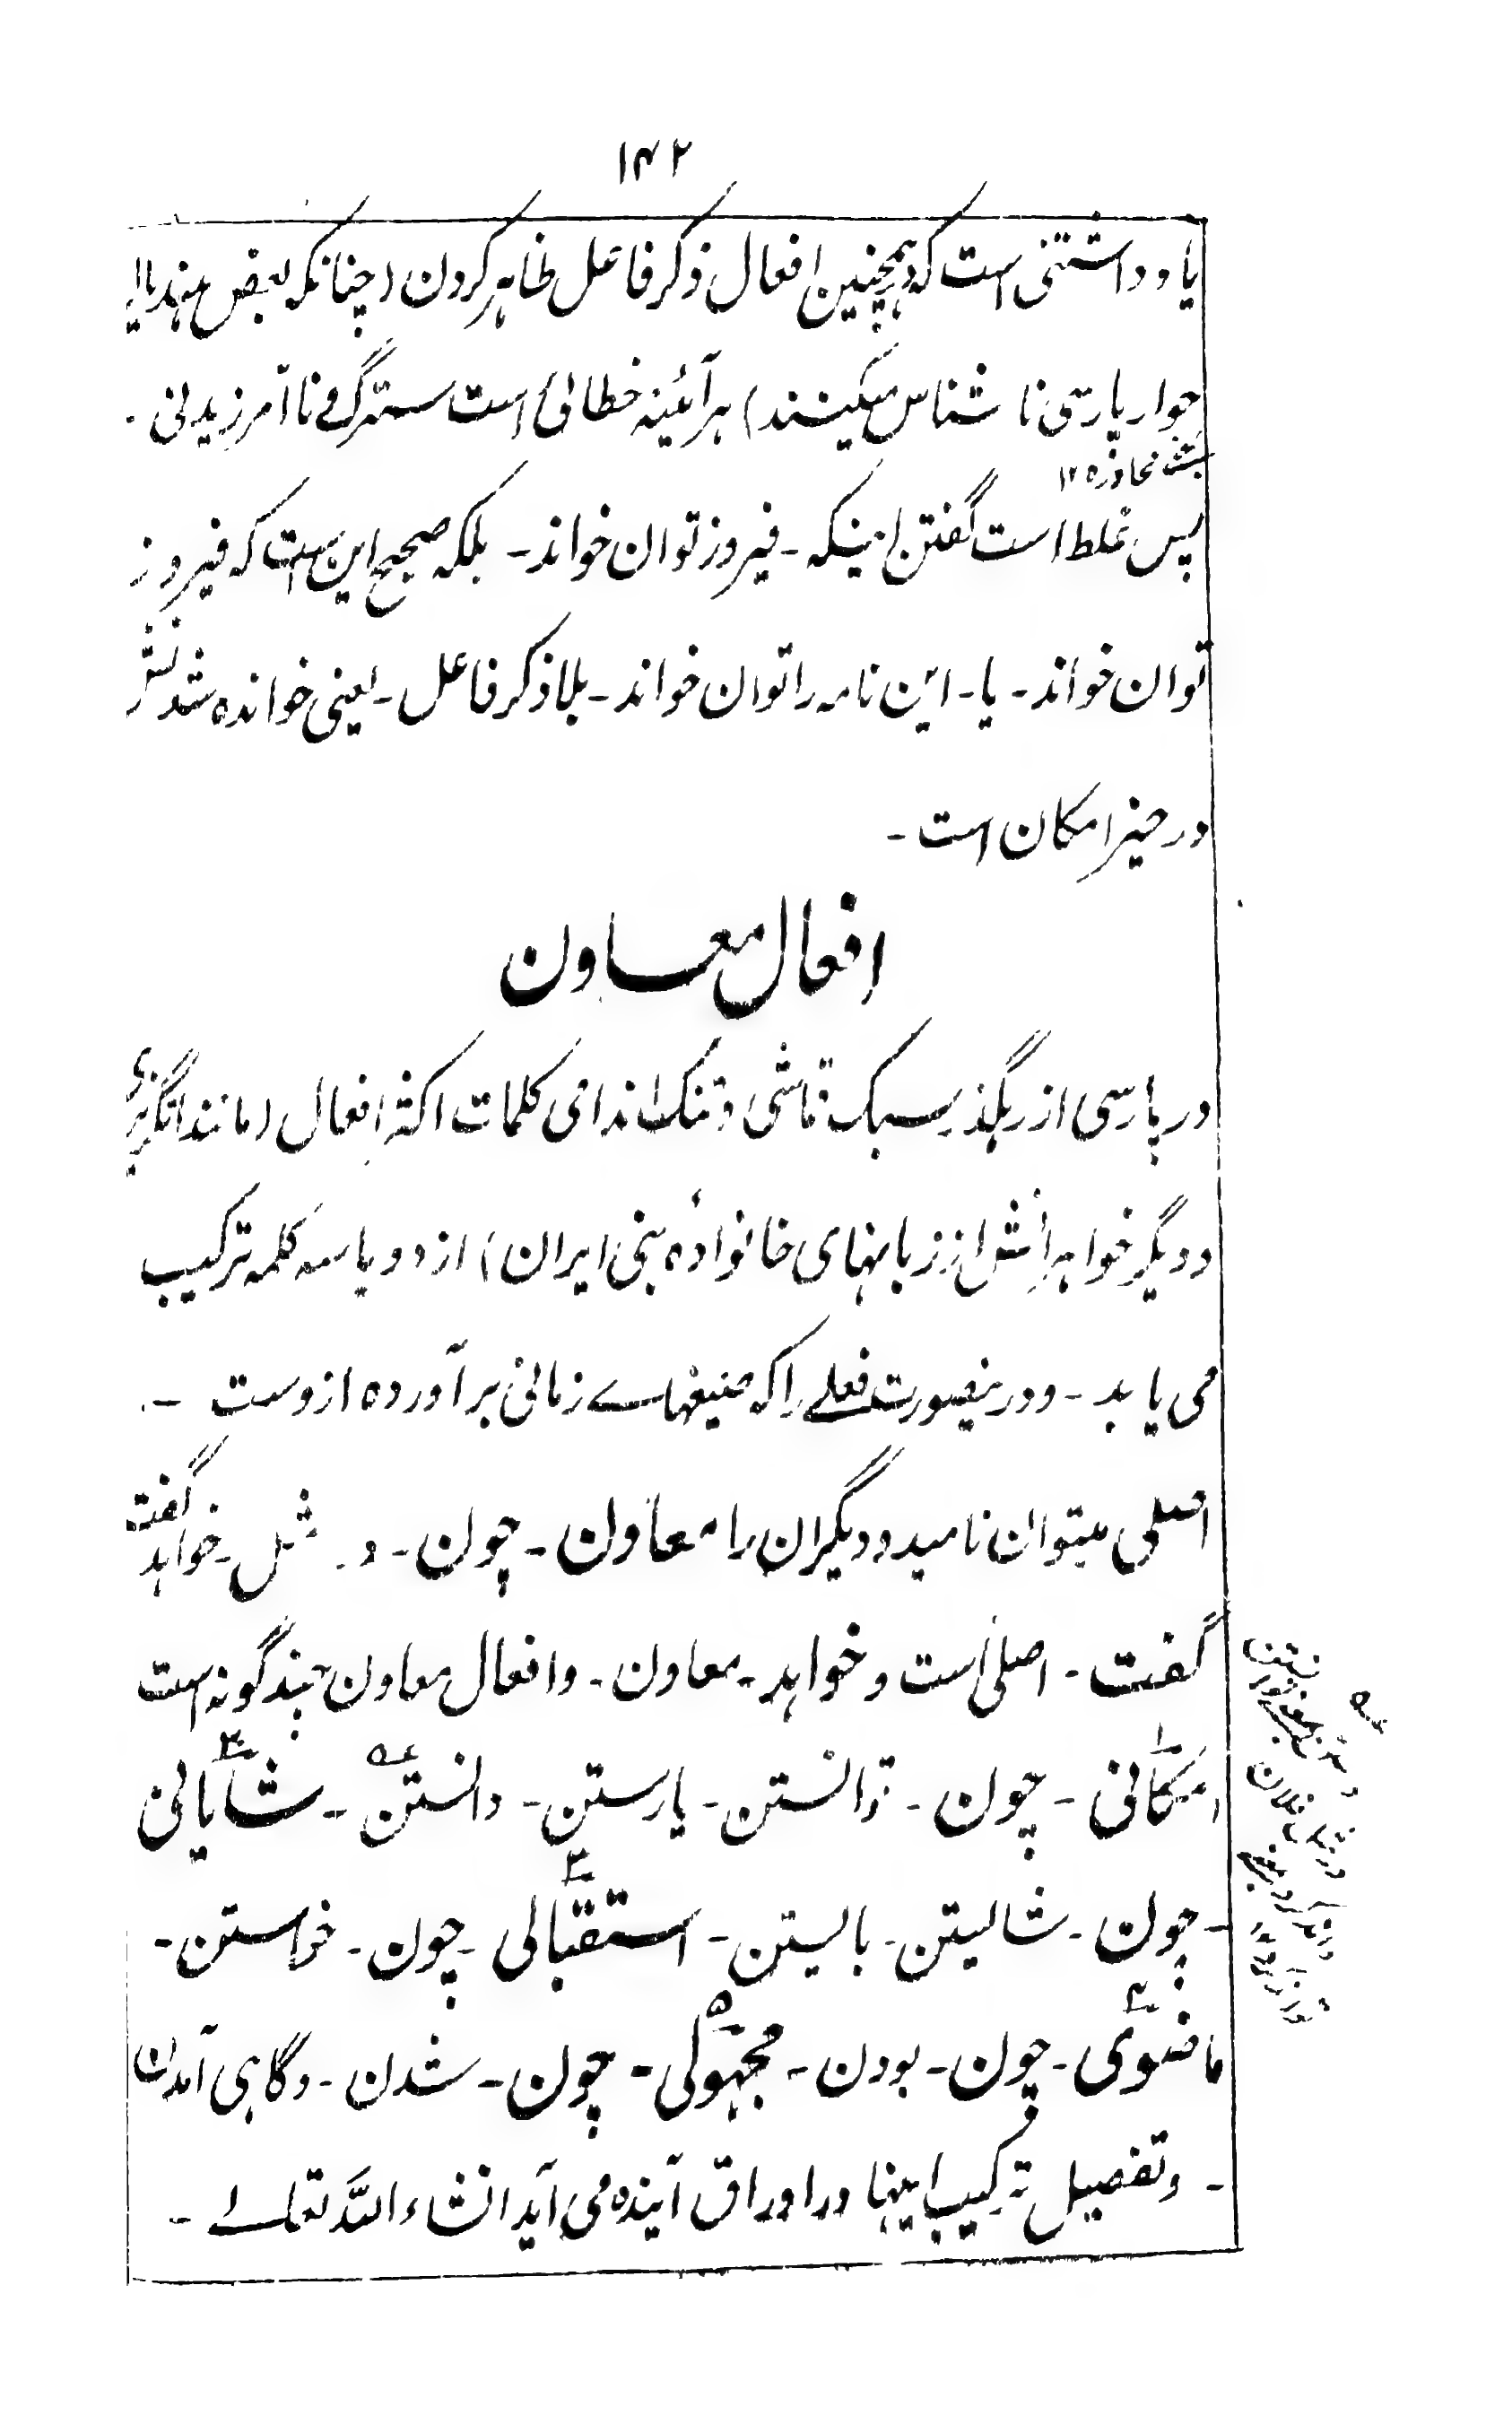 ۱۴۲
یاد داشتنی است که در همچنین افعال ذکر فاعل ظاهر کردن (چنانکه بعض هندیان
جوار پارسی نا شناس میکنند) هر آئینه خطائی است سترگ و نا آمرزیدنی -
پس غلط است گفتن اینکه - فیروز توان خواند - بلکه صحیح این است که فیروز
توان خواند - یا - این نامه را توان خواند - بلا ذکر فاعل - یعنی خوانده شدنش
در حیز امکان است -
افعال معاون
در پارسی از رهگذر سبک قماشی و تنک اندامی کلمات اکثر افعال (مانند انگریزی
و دیگر خواهرانش از زبانهای خانوادهٔ بنی ایران) از دو یا سه کلمه ترکیب
می یابد - و درینصورت فعلے را که صیغهاے زمانی بر آورده ازوست -
اصلی میتوان نامید و دیگران را معاون - چون - در مثل - خواهد گفت
گفت - اصلی است و خواهد - معاون - و افعال معاون چند گونه است
امکانی - چون - توانستن - یارستن - دانستن - شایانی
- چون - شایستن - بایستن - استقبالی - چون - خواستن -
ماضوی - چون - بودن - مجهولی - چون - شدن - و گاهی آمدن
- و تفصیل ترکیب اینها در اوراق آینده می آید انشاء الله تعالے -